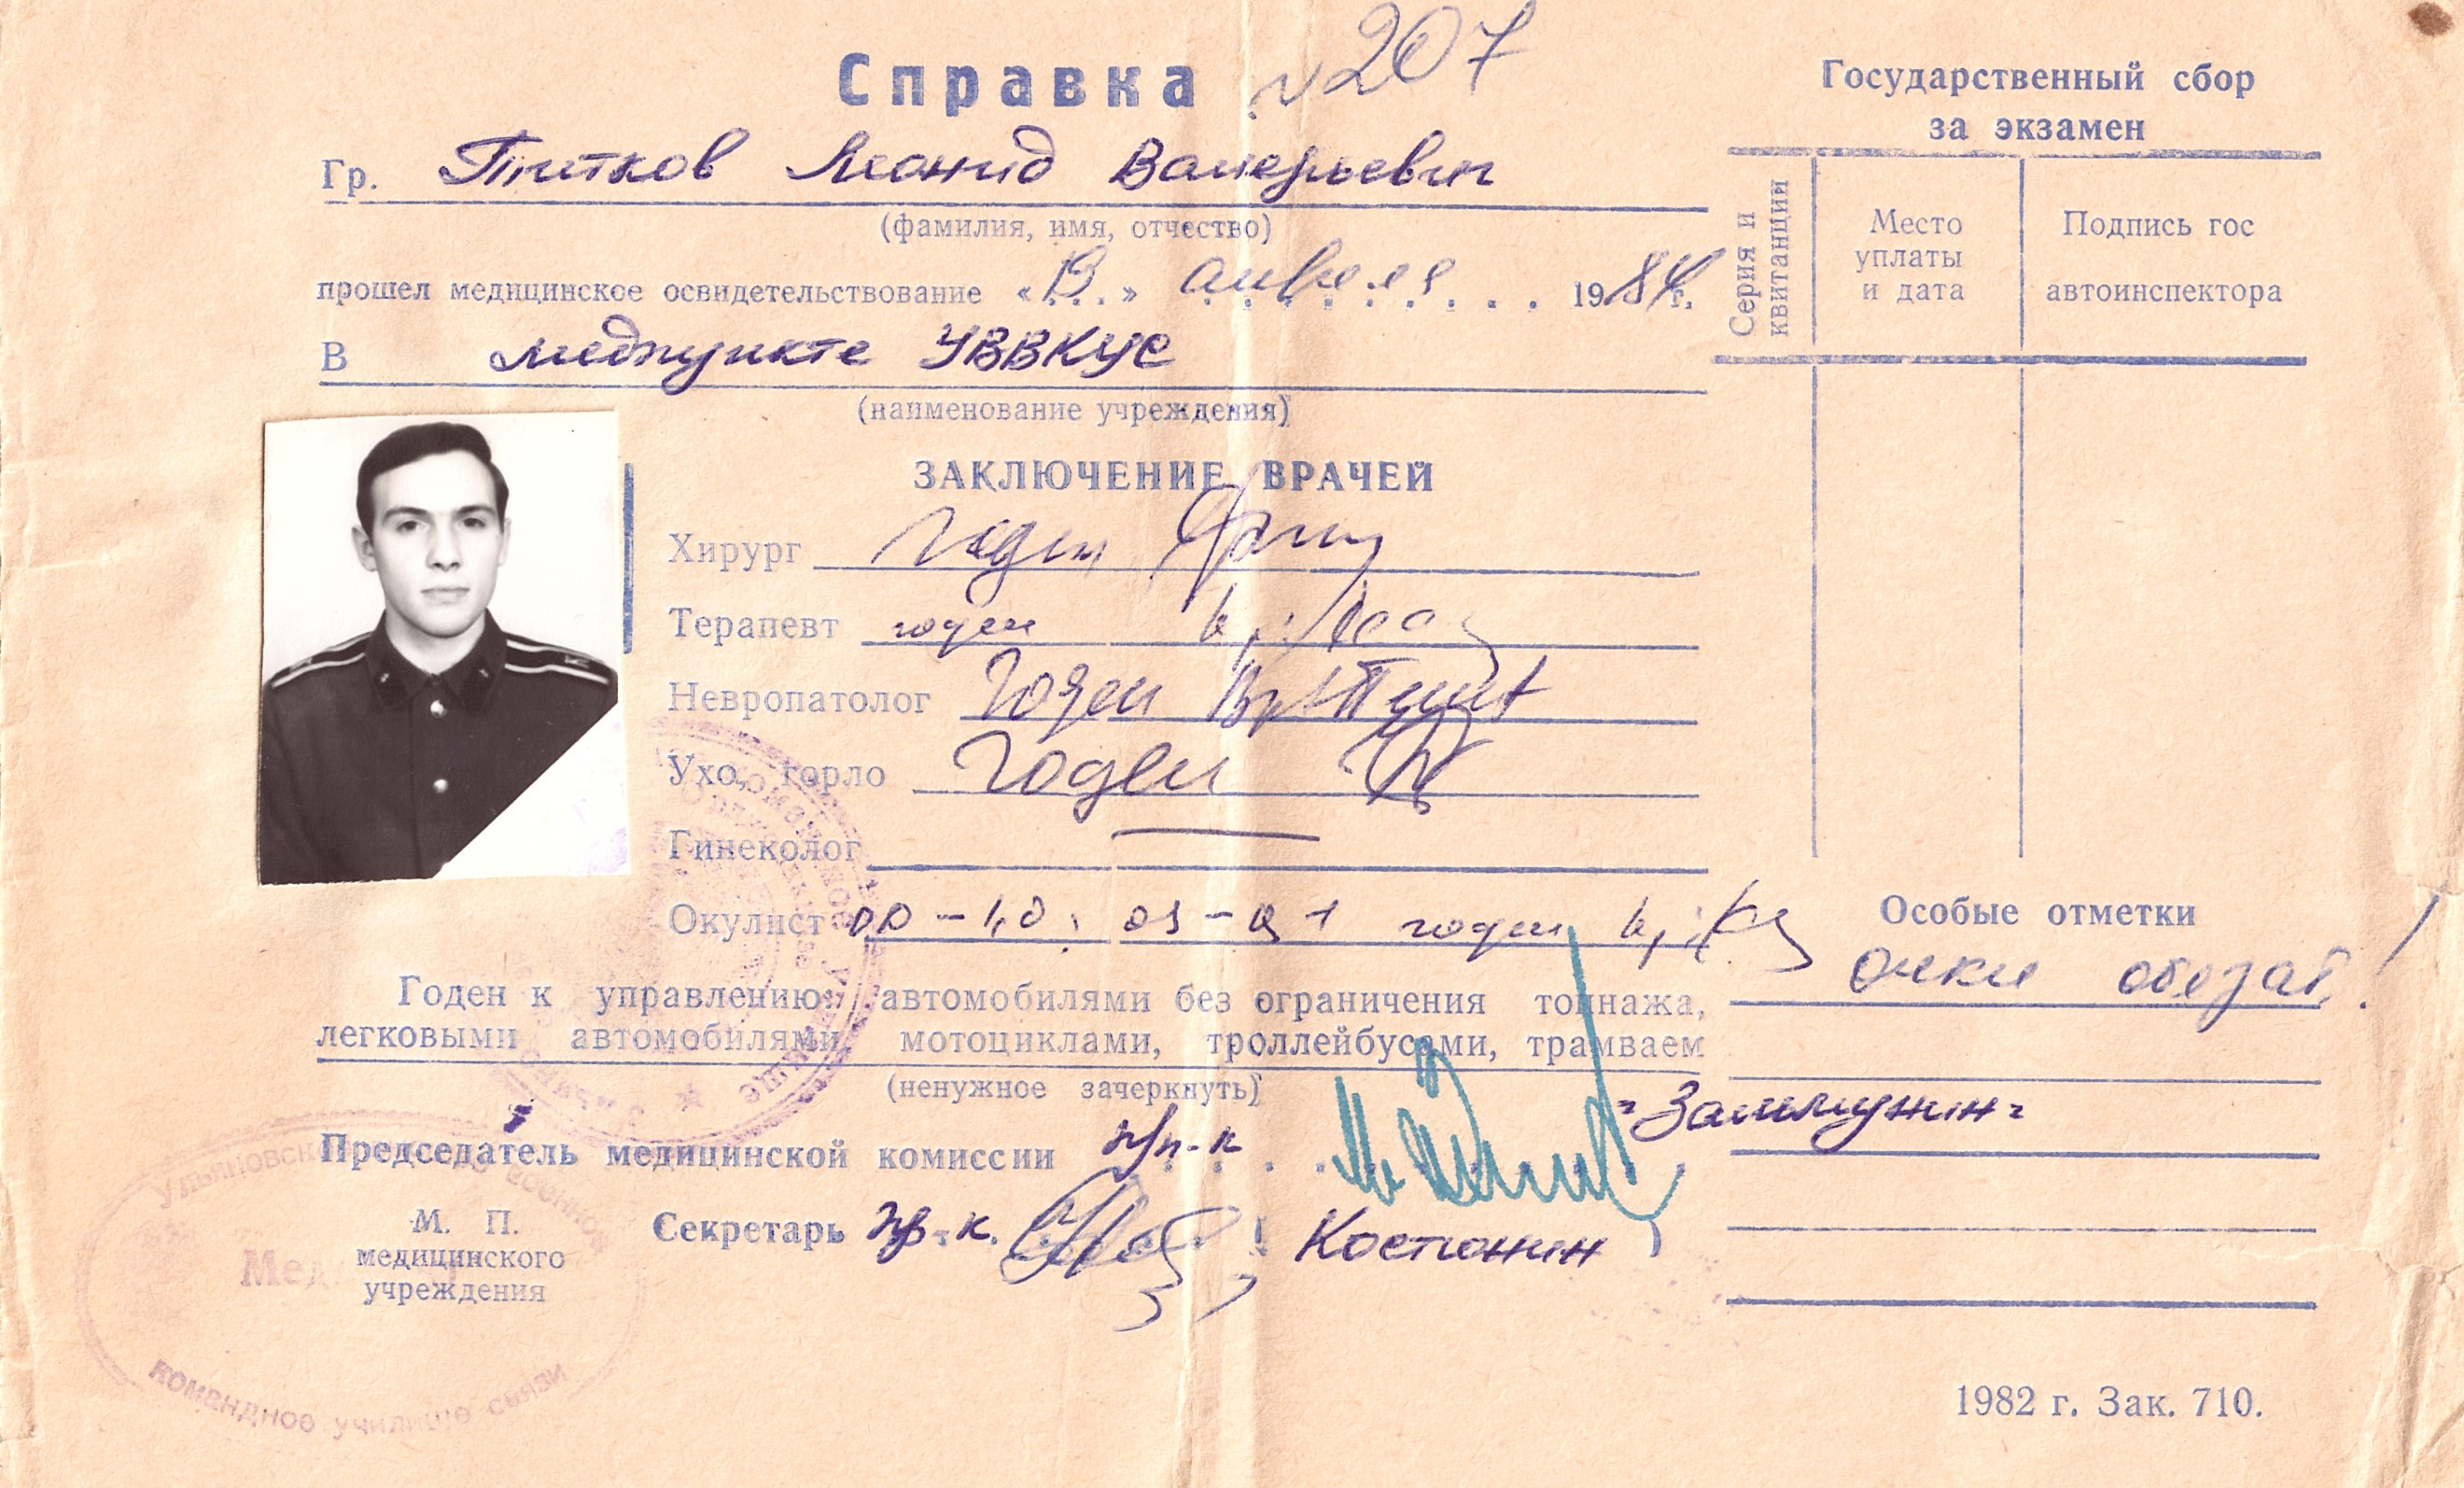 Справка №207
Гр. Титков Леонид Валерьевич
(фамилия, имя, отчество)
прошел медицинское освидетельствование « » апреля 1984 г.
В медпункте УВВКУС
(наименование учреждения)
ЗАКЛЮЧЕНИЕ ВРАЧЕЙ
Хирург годен
Терапевт годен
Невропатолог Годен
Ухо, горло Годен
Гинеколог —
Окулист годен
Годен к управлению автомобилями без ограничения тоннажа,
легковыми автомобилями, мотоциклами, троллейбусами, трамваем
(ненужное зачеркнуть)
Председатель медицинской комиссии пп-к
Секретарь пр-к Костюнин
М. П.
медицинского
учреждения
Государственный сбор
за экзамен
Серия и
квитанции
Место
уплаты
и дата
Подпись гос
автоинспектора
Особые отметки
очки обязат!
1982 г. Зак. 710.
Ульяновское военное
командное училище связи